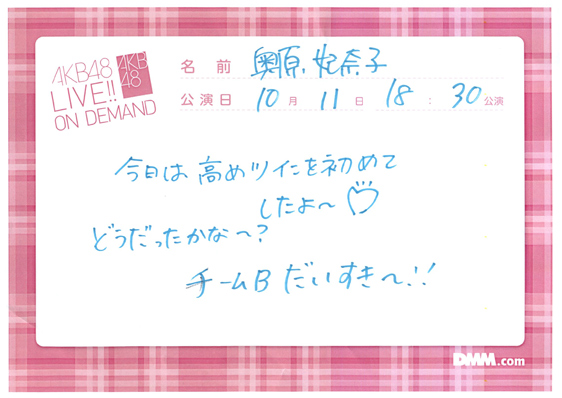 AKB48
LIVE!!
ON DEMAND
AKB
48
名前 奥原妃奈子
公演日 10月11日 18:30公演
今日は高めツインを初めて
したよ〜♡
どうだったかな〜?
チームBだいすき〜!!
DMM.com